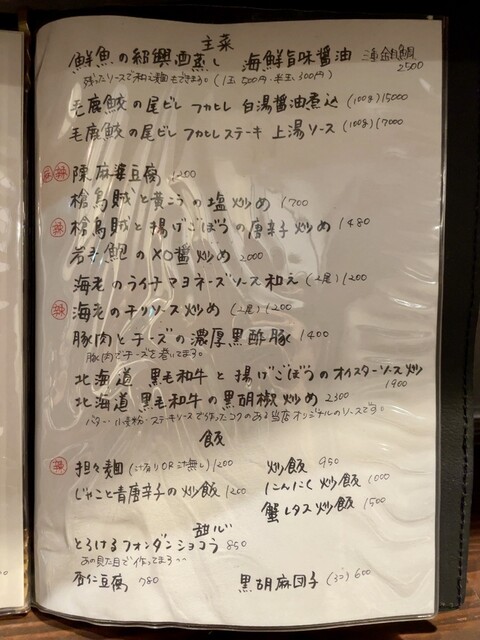 主菜
鮮魚の紹興酒蒸し 海鮮旨味醤油
2500
残ったソースで和え麺もできます。(1玉 500円・半玉 300円)
毛鹿鮫の尾ビレ フカヒレ 白湯醤油煮込 (100g) 15000
毛鹿鮫の尾ビレ フカヒレステーキ 上湯ソース (100g) 17000
陳麻婆豆腐 1200
槍烏賊と黄ニラの塩炒め 1700
辣 槍烏賊と揚げごぼうの唐辛子炒め 1480
若手鮑のXO醤炒め 2000
海老のライチマヨネーズソース和え (2尾) 1200
辣 海老のチリソース炒め (2尾) 1200
豚肉とチーズの濃厚黒酢豚 1400
豚肉でチーズを巻いてます。
北海道 黒毛和牛と揚げごぼうのオイスターソース炒め
1900
北海道 黒毛和牛の黒胡椒炒め 2300
バター・小麦粉・ステーキソースで作ったコクのある当店オリジナルのソースです。
飯
辣 担々麺 (汁有りOR汁無し) 1200 炒飯 950
じゃこと青唐辛子の炒飯 1200 にんにく炒飯 1000
蟹レタス炒飯 1500
甜心
とろけるフォンダンショコラ 850
あの見た目で作ってます…
杏仁豆腐 780 黒胡麻団子 (3コ) 600